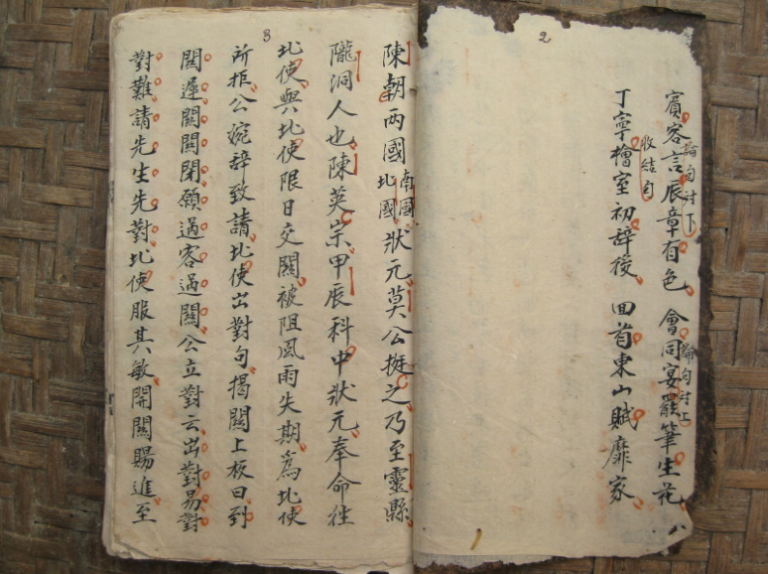 2
賓客言辰章有色 會同宴罷筆生花
丁寧檜室初辭後 回首東山賦靡家
收結句
3
陳朝兩國南國北國狀元莫公挺之乃至靈縣
隴洞人也陳英宗甲辰科中狀元奉命往
北使與北使限日交關被阻風雨失期爲北使
所拒公婉辭致請北使出對句揭關上板曰到
關遲關關閉願過客過關公立對云出對易對
對難請先生先對北使服其敏開關賜進至